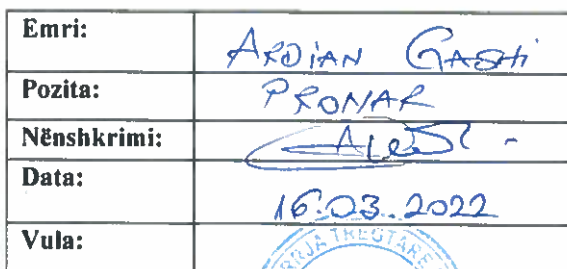 Emri: ARDIAN GASHI
Pozita: PRONAR
Nënshkrimi:
Data: 16.03.2022
Vula:
TREGTARE